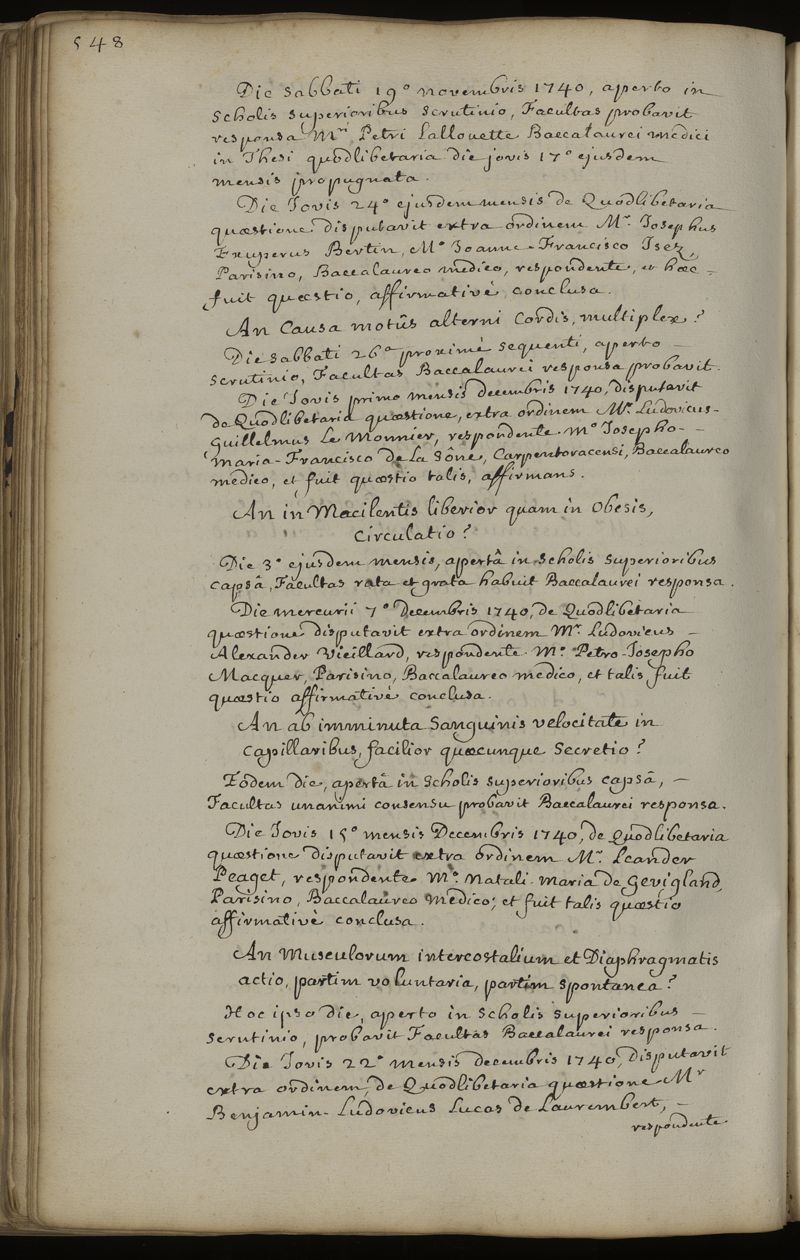 548
Die Sabbati 19º novembris 1740, aperto in
Scholis Superioribus Scrutinio, Facultas probavit
responsa Mri Petri Lallouette Baccalaurei medici
in Thesi quodlibetaria die jovis 17º ejusdem
mensis propugnata.
Die Jovis 24º ejusdem mensis de Quodlibetaria
quæstione disputavit extra ordinem Mr. Josephus
Exuperus Bertin, Mº Joanne-Francisco Isez,
Parisino, Baccalaureo medico, respondente, et hæc –
fuit quæstio, affirmativè conclusa.
An Causa motûs alterni Cordis, multiplex?
Die Sabbati 26º proximè sequenti, aperto –
Scrutinio, Facultas Baccalaurei responsa probavit.
Die Jovis primo mensis decembris 1740, disputavit
de Quodlibetariâ quæstione, extra ordinem Mr. Ludovicus-
Guillelmus Le Monnier, respondente Mº Josepho- –
Maria-Francisco de La Sône, Carpentoracensi, Baccalaureo
medico, et fuit quæstio talis, affirmans.
An in Macilentis liberior quam in Obesis,
Circulatio?
Die 3º ejusdem mensis, apertâ in Scholis Superioribus
Capsâ, Facultas rata et grata habuit Baccalaurei responsa.
Die mercurii 7º Decembris 1740, de Quodlibetaria
quæstione disputavit extra ordinem Mr. Ludovicus –
Alexander Vieillard, respondente Mº. Petro-Josepho
Macquer, Parisino, Baccalaureo medico, et talis fuit
quæstio affirmativè conclusa.
An ab imminuta Sanguinis velocitate in
Capillaribus, facilior quæcunque Secretio?
Eodem die, apertâ in Scholis Superioribus capsâ, –
Facultas unanimi consensu probavit Baccalaurei responsa.
Die Jovis 15º mensis Decembris 1740, de Quodlibetaria
quæstione disputavit extra ordinem Mr. Leander
Peaget, respondente Mº. Natali-Maria de Gevigland,
Parisino, Baccalaureo Medico; et fuit talis quæstio
affirmativè conclusa.
An Musculorum intercostalium et Diaphragmatis
actio, partim voluntaria, partim Spontanea?
Hoc ipso die, aperto in Scholis Superioribus –
Scrutinio, probavit Facultas Baccalaurei responsa.
Die Jovis 22º mensis decembris 1740, disputavit
extra ordinem, de Quodlibetaria quæstione Mr
Benjamin-Ludovicus Lucas de Laurembert, –
respondente